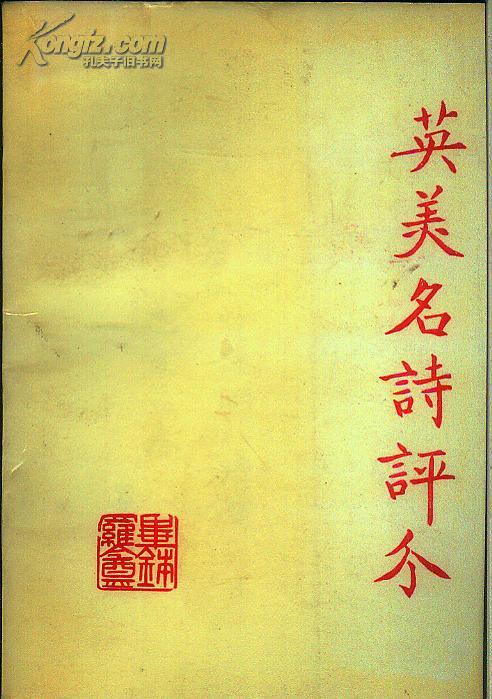 Kongfz.com
孔夫子旧书网
英美名詩評介